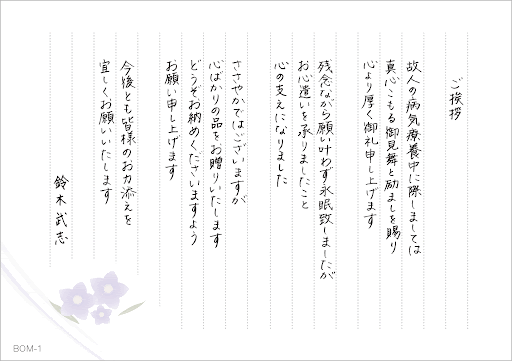 ご挨拶
故人の病気療養中に際しましては
真心こもる御見舞と励ましを賜り
心より厚く御礼申し上げます
残念ながら願い叶わず永眠致しましたが
お心遣いを承りましたこと
心の支えになりました
ささやかではございますが
心ばかりの品をお贈りいたします
どうぞお納めくださいますよう
お願い申し上げます
今後とも皆様のお力添えを
宜しくお願いいたします
鈴木武志
BOM-1